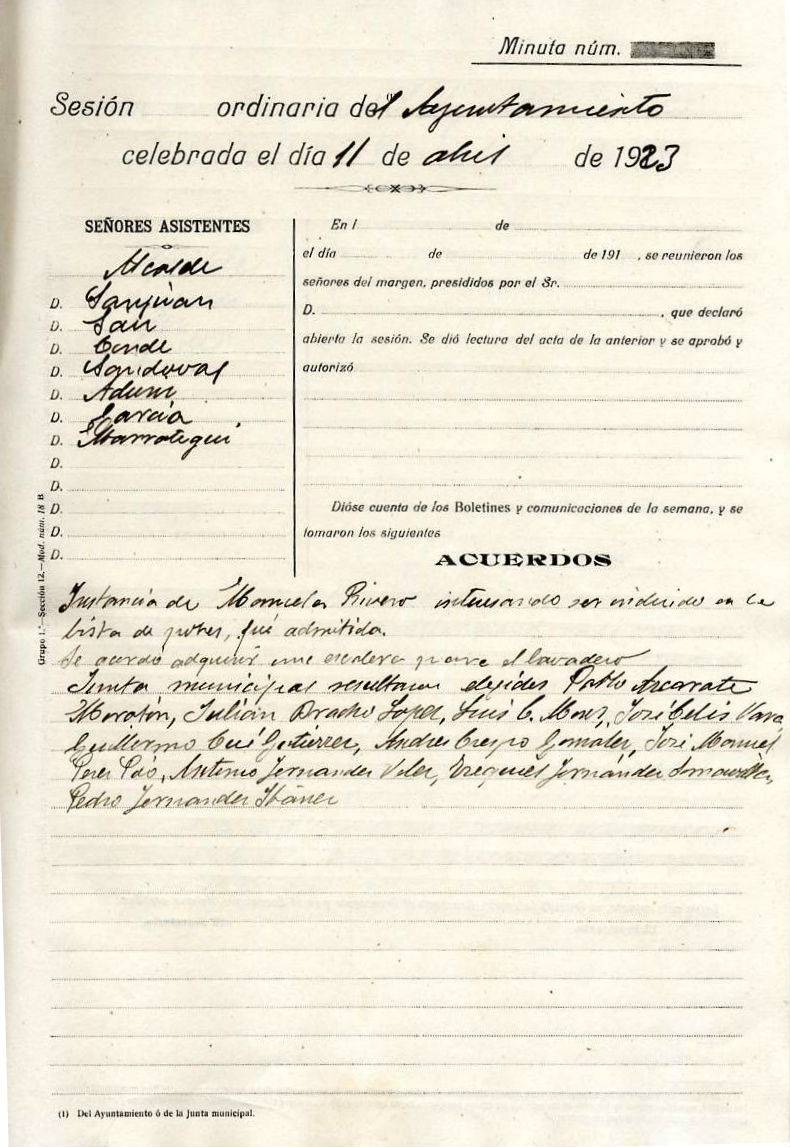 Minuta núm.
Sesión ordinaria del Ayuntamiento
celebrada el día 11 de abril de 1923
SEÑORES ASISTENTES
Alcalde
D. Sanjuan
D. San
D. Conde
D. Sandoval
D. Aduna
D. García
D. Ibarrategui
D.
D.
D.
D.
D.
En l de
el día de de 191 , se reunieron los
señores del margen, presididos por el Sr.
D. , que declaró
abierta la sesión. Se dió lectura del acta de la anterior y se aprobó y
autorizó
Dióse cuenta de los Boletines y comunicaciones de la semana, y se
tomaron los siguientes
ACUERDOS
Instancia de Manuela Rivero interesando ser incluido en la
lista de pobres, fué admitida.
Se acordó adquirir una escalera para el lavadero
Junta municipal resultaron elegidos Pablo Azcarate
Maratón, Julián Bracho Lopez, Luis C. José Celis Vara
Guillermo Cué Gutierrez, Andres Crespo Gonzalez, José Manuel
Perez Antonio Fernandez Velez, Ezequiel Fernández
Pedro Fernandez Ibáñez
Grupo 1.º—Sección 12.—Mod. núm. 18 B
(1) Del Ayuntamiento ó de la Junta municipal.